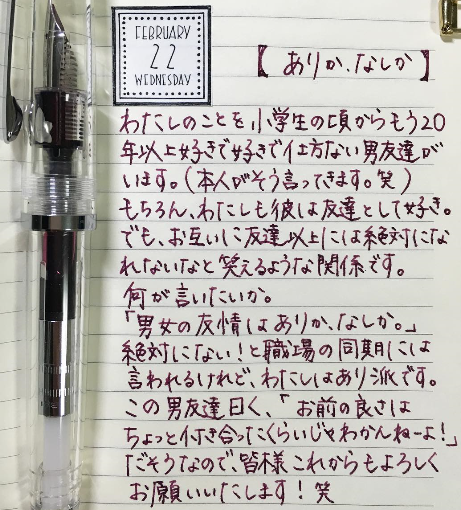 FEBRUARY
22
WEDNESDAY
【ありか、なしか】
わたしのことを小学生の頃からもう20
年以上好きで好きで仕方ない男友達が
います。(本人がそう言ってきます。笑)
もちろん、わたしも彼は友達として好き。
でも、お互いに友達以上には絶対にな
れないなと笑えるような関係です。
何が言いたいか。
「男女の友情はありか、なしか。」
絶対にない!と職場の同期には
言われるけれど、わたしはあり派です。
この男友達曰く、「お前の良さは
ちょっと付き合ったくらいじゃわかんねーよ!」
だそうなので、皆様これからもよろしく
お願いいたします!笑